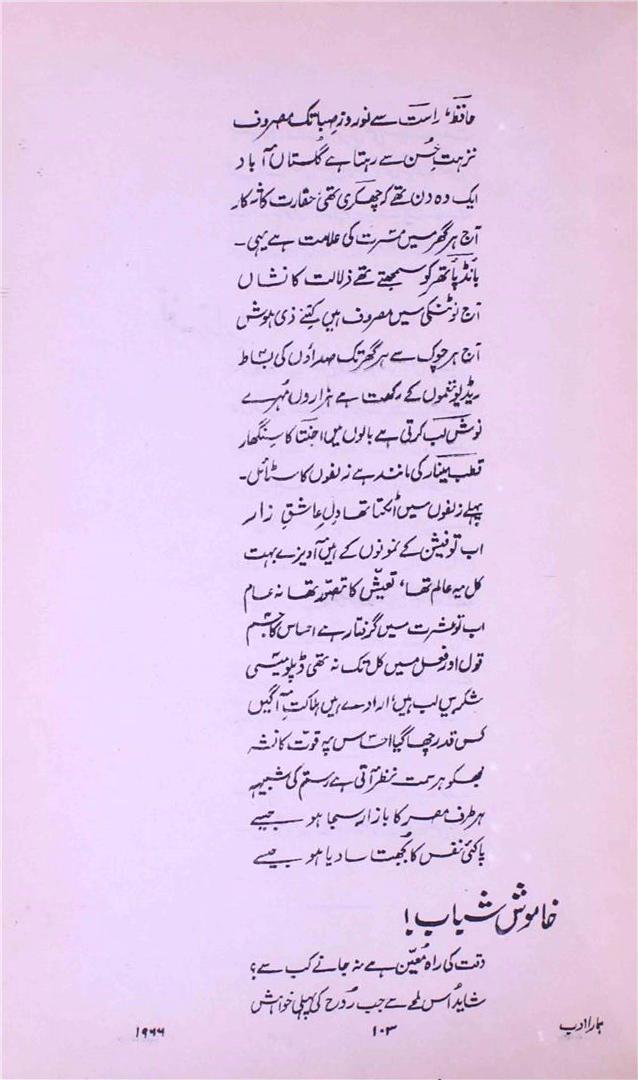 حافظؔ، راستؔ سے نوروزِ صبا تک مصروف
نزہتِ حُسن سے رہتا ہے گلستاں آباد
ایک وہ دن تھے کہ چھکری تھی حقارت کا شہ کار
آج ہر گھر میں مسّرت کی علامت ہے یہی۔
بانڈ پاتھر کو سمجھتے تھے ذلالت کا نشاں
آج نوٹنکی میں مصروف ہیں کتنے ذی ہوش
آج ہر چوک سے ہر گھر تک صداؤں کی بساط
ریڈیو نغموں کے رکھتا ہے ہزاروں مُہرے
نوش لب کرتی ہے بالوں میں اجنتا کا سنگھار
قطب مینار کی مانند ہے زلفوں کا سٹائل۔
پہلے زلفوں میں اٹکتا تھا دلِ عاشقِ زار
اب تو فیشن کے نمونوں کے ہیں آویزے بہت
کل یہ عالم تھا، تعیّش کا تصّور تھا نہ عام
اب تو عشرت میں گرفتار ہے احساس کا جسم
قول اور فعل میں کل تک نہ تھی ڈپلومیسی
شکریں لب ہیں، ارادے ہیں ہلاکت آگیں
کس قدر چھا گیا احساس پہ قوت کا نشہ
مجھکو ہر سمت نظر آتی ہے رستم کی شبیہہ
ہر طرف مصر کا بازار سجا ہو جیسے
پاکئی نفس کا بُجھتا سا دیا ہو جیسے
خاموش شباب!
وقت کی راہ مُعیّن ہے نہ جانے کب سے؟
شاید اُس لمحے سے جب رُوح کی پہلی خواہش
ہمارا ادب ۱۰۳ ۱۹۶۶